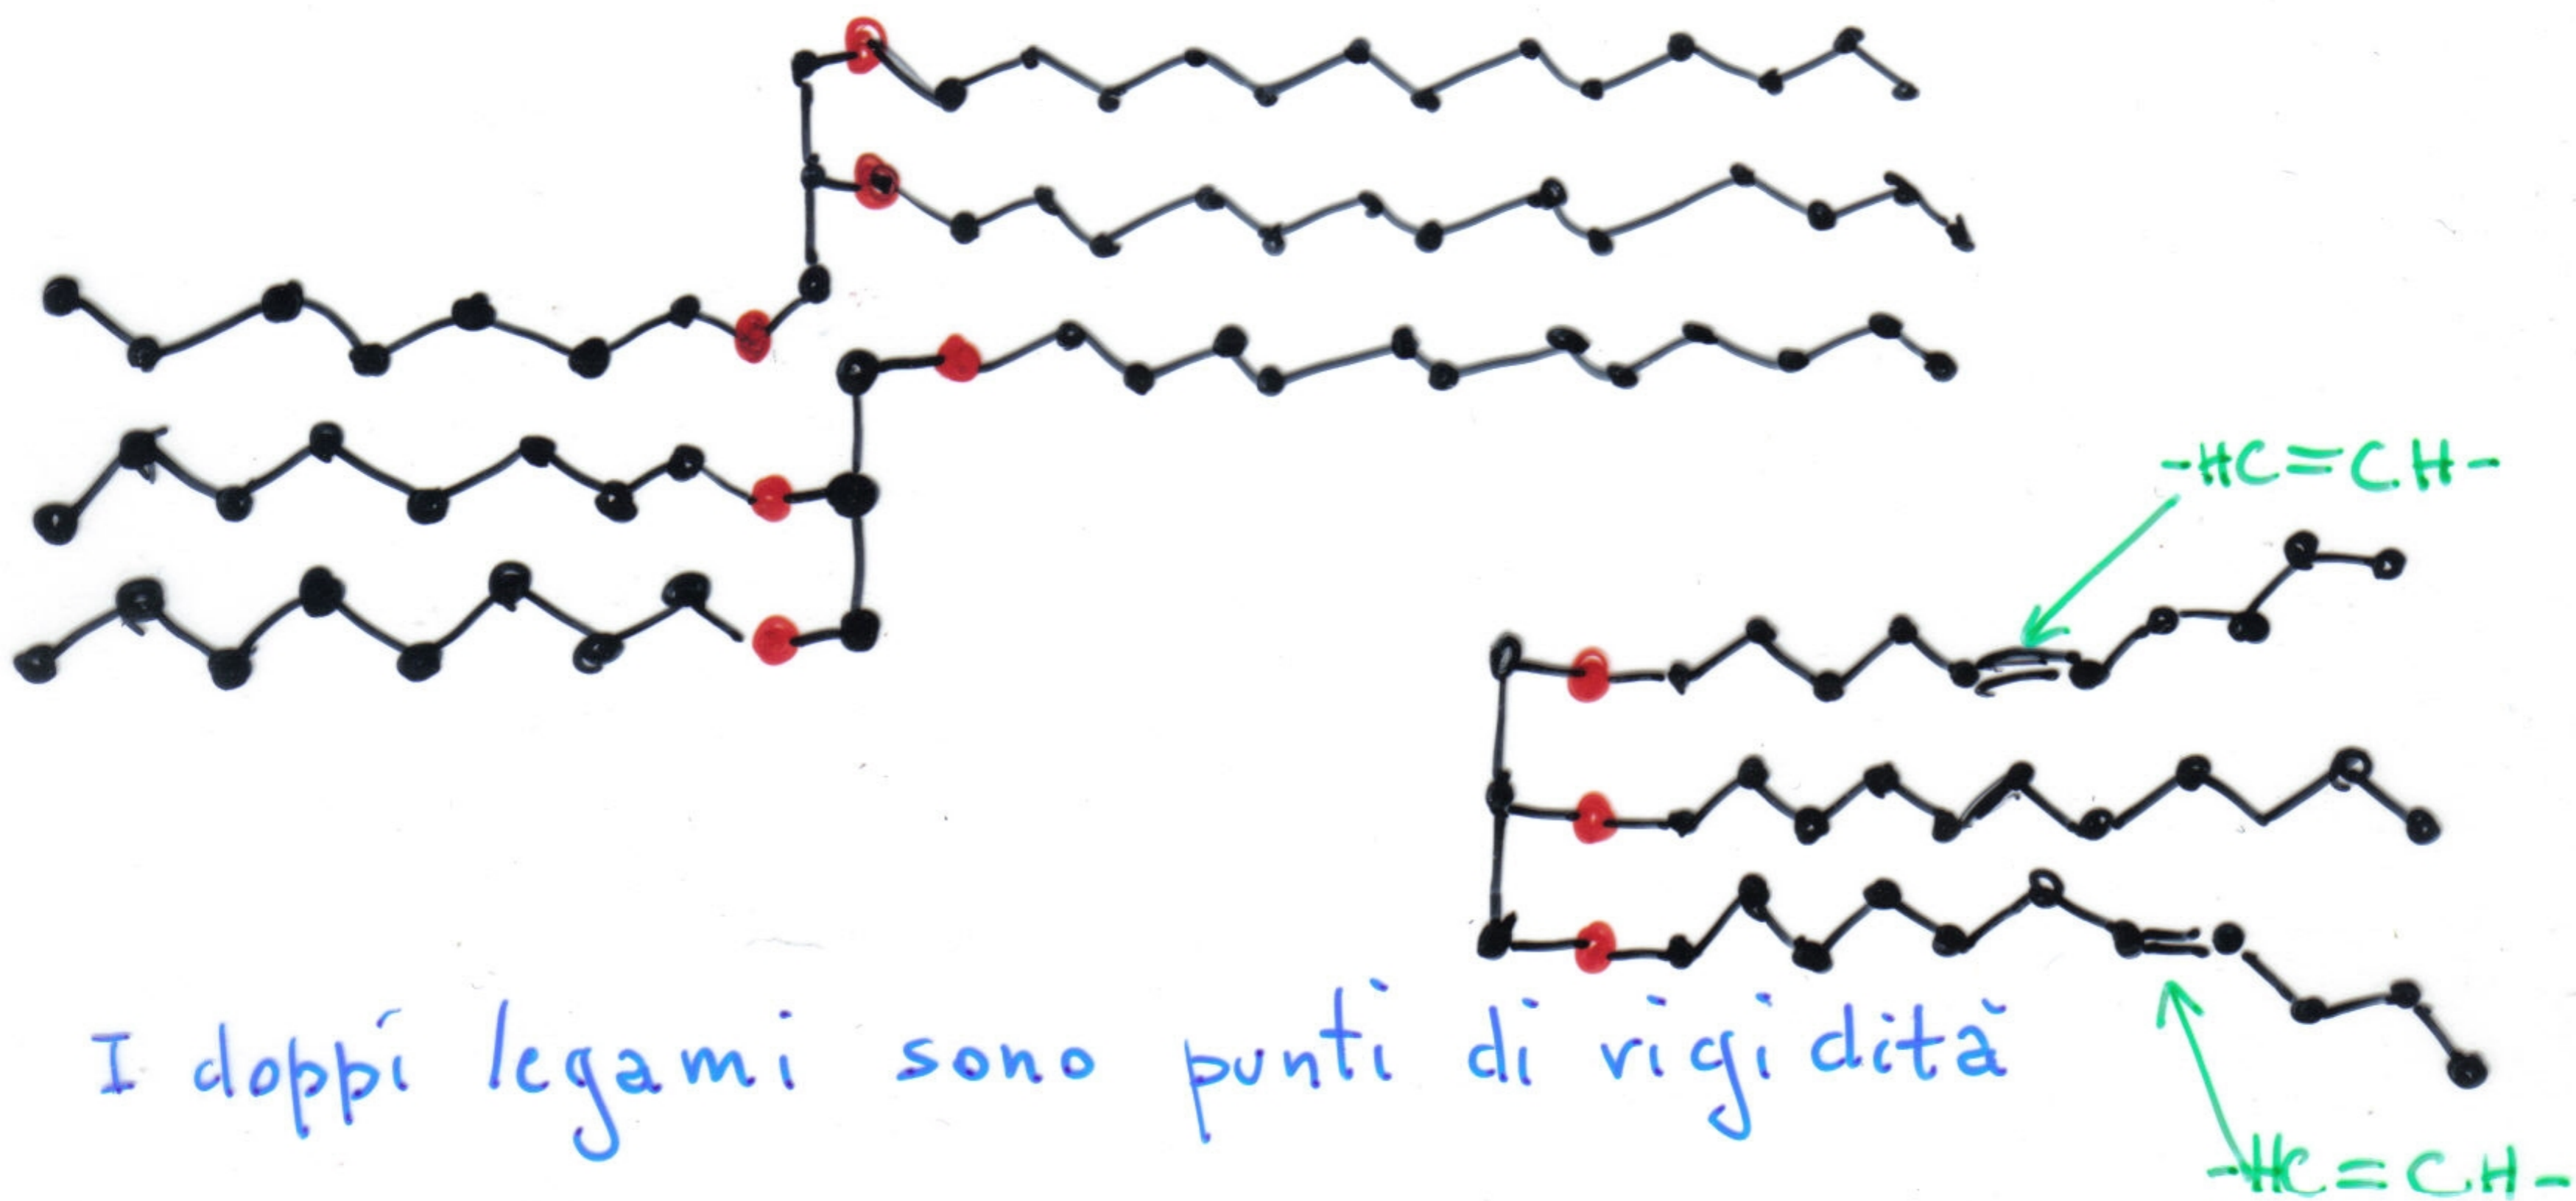 -HC=CH-
I doppi legami sono punti di rigidità
-HC=CH-